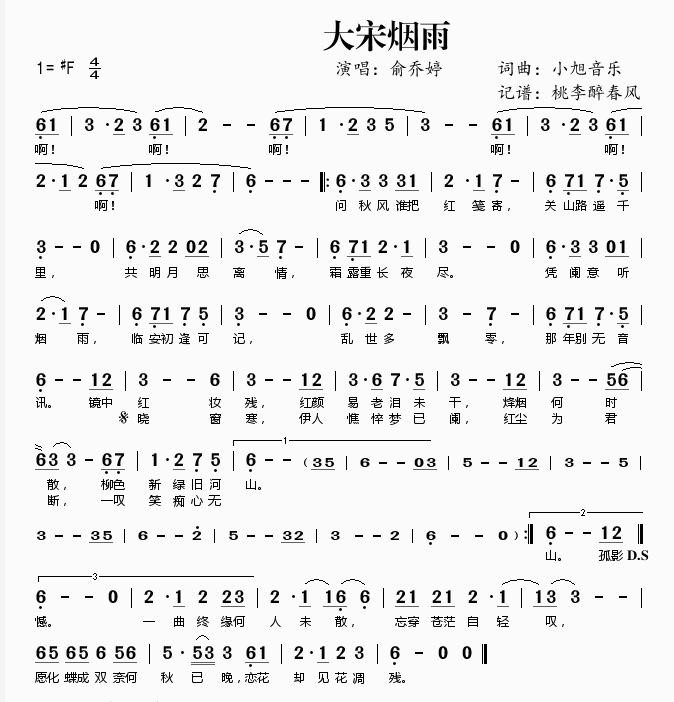 大宋烟雨
1=♯F 4/4 演唱：俞乔婷 词曲：小旭音乐
记谱：桃李醉春风
61 | 3 ·23 61 | 2 - - 67 | 1 ·235 | 3 - - 61 | 3 ·23 61 |
啊！ 啊！ 啊！ 啊！ 啊！
2·12 67 | 1 ·327 | 6 - - - |: 6·3 3 31 | 2 ·17 - | 6 71 7·5 |
啊！ 问 秋风谁把 红 笺寄， 关 山路 遥 千
3 - - 0 | 6·22 02 | 3·57 - | 6 71 2·1 | 3 - - 0 | 6·33 01 |
里， 共 明月 思 离 情， 霜 露重长 夜 尽。 凭 阑意 听
2·17 - | 6 71 7 5 | 3 - - 0 | 6·22 - | 3 - 7 - | 6 71 7·5 |
烟 雨， 临 安初 逢 可 记， 乱 世多 飘 零， 那 年别 无 音
6 - - 12 | 3 - - 6 | 3 - - 12 | 3·67·5 | 3 - - 12 | 3 - - 56 |
讯。 镜中 红 妆 残， 红颜 易 老泪 未 干， 烽烟 何 时
𝄋 晓 窗 寒， 伊人 憔 悴梦 已 阑， 红尘 为 君
63 3 - 67 | 1·275 | 6 - - (35 | 6 - - 03 | 5 - - 12 | 3 - - 5 |
1
散， 柳色 新 绿旧河 山。
断， 一叹 笑 痴心无
3 - - 35 | 6 - - 2 | 5 - - 32 | 3 - - 2 | 6 - - 0 ) :| 6 - - 12 |
2
山。 孤影 D.S
3
6 - - 0 | 2 ·12 23 | 2 ·1 16· 6 | 21 21 2 ·1 | 13 3 - - |
憾。 一 曲终 缘何 人 未 散， 忘穿 苍茫 自 轻 叹，
65 65 6 56 | 5·53 3 61 | 2·123 | 6 - 0 0 |
愿化 蝶成 双 奈何 秋 已 晚，恋花 却 见花凋 残。